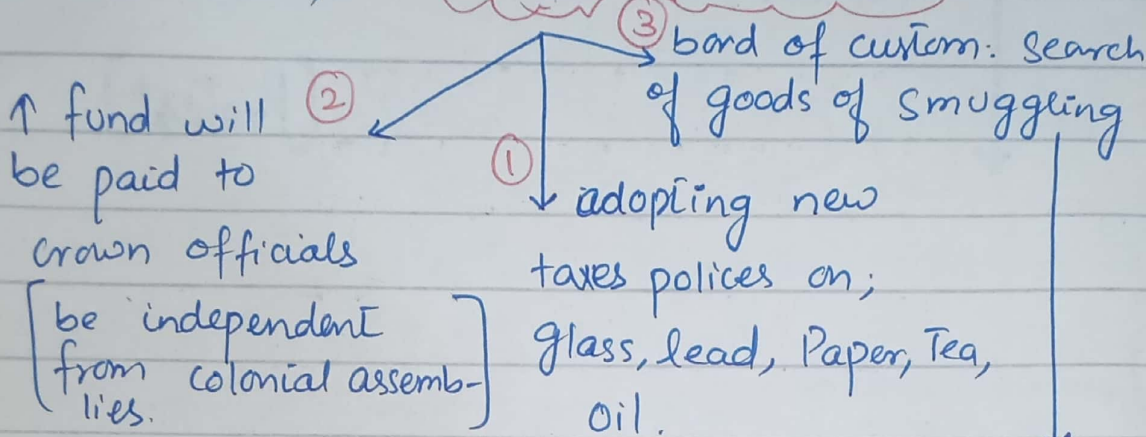 ③ bord of custom: Search
of goods of smuggling
② ↑ fund will
be paid to
crown officials
[be independent
from colonial assemb-
lies.]
① adopting new
taxes polices on;
glass, lead, Paper, Tea,
oil.